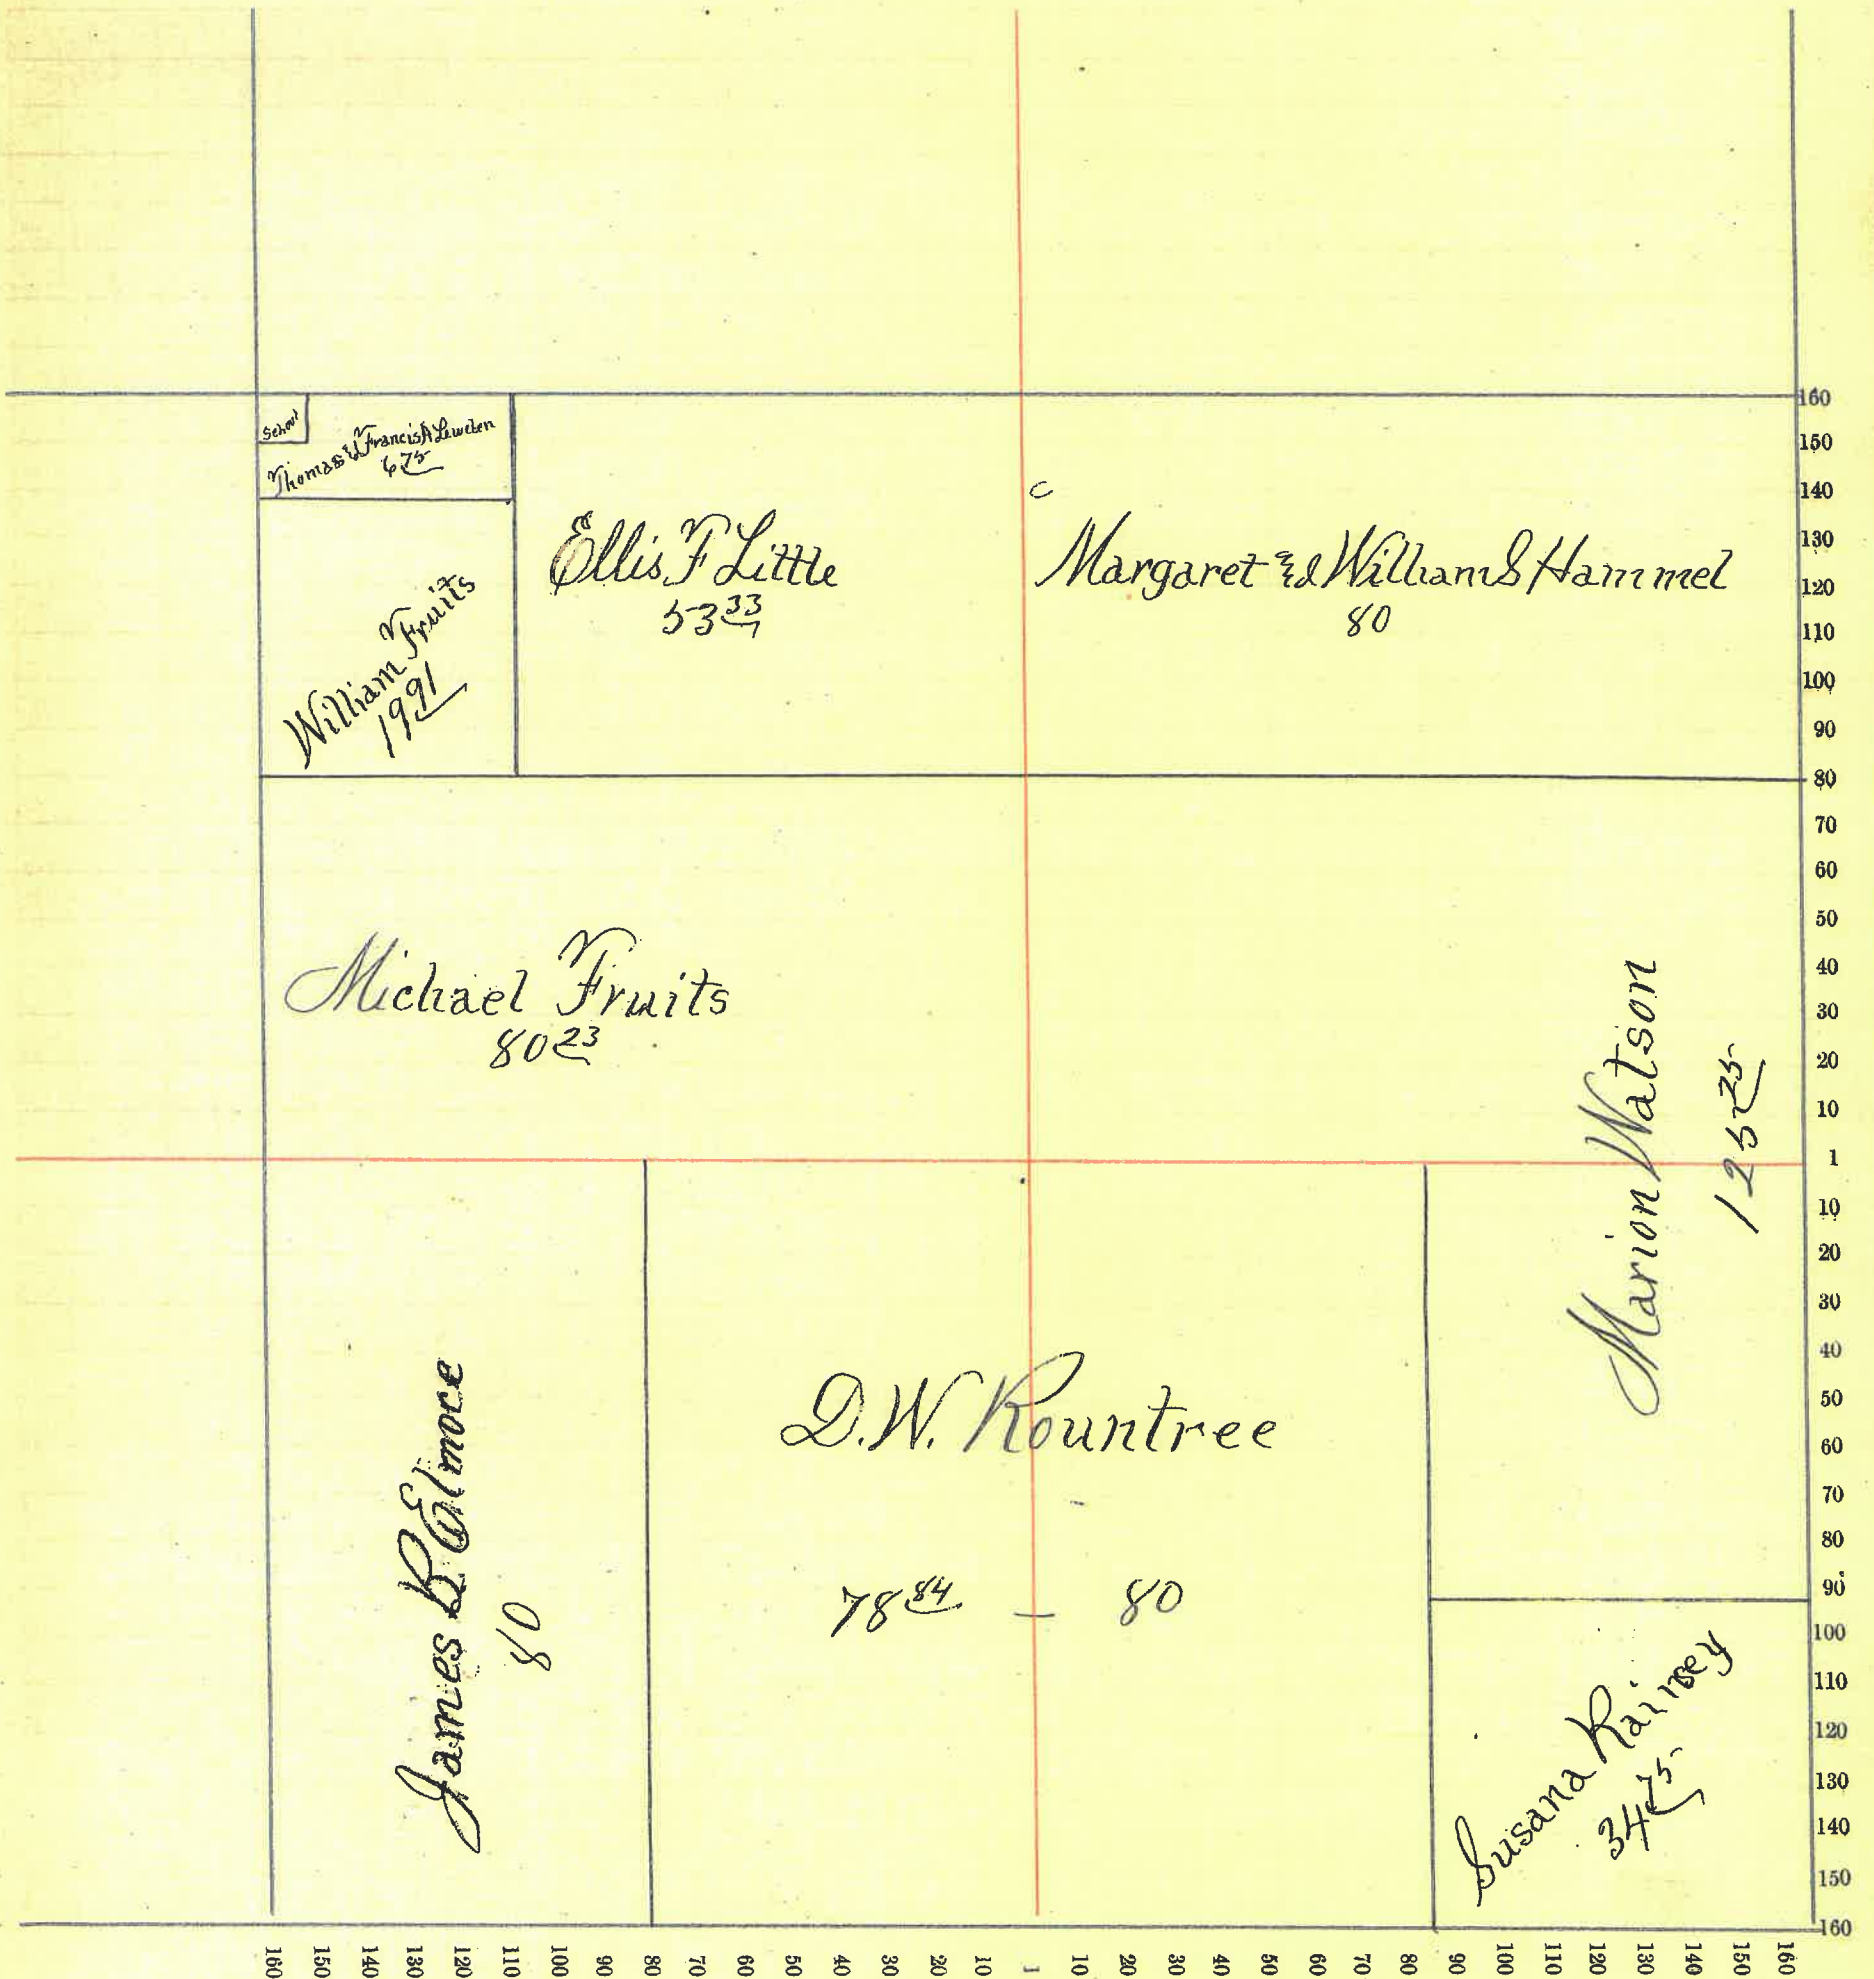 School
Thomas & Francis A Lewellen
6 75
Ellis F Little
53 33
Margaret & William S Hammel
80
William Fruits
19 91
Michael Fruits
80 23
Marion Watson
125 25
James B Elmore
80
D.W. Rountree
78 84 — 80
Susana Rainsey
34 75
160
150
140
130
120
110
100
90
80
70
60
50
40
30
20
10
1
10
20
30
40
50
60
70
80
90
100
110
120
130
140
150
160
160 150 140 130 120 110 100 90 80 70 60 50 40 30 20 10 1 10 20 30 40 50 60 70 80 90 100 110 120 130 140 150 160